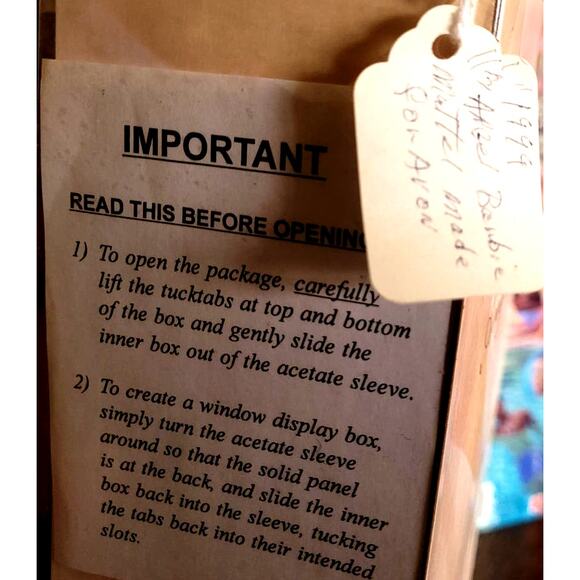 IMPORTANT
READ THIS BEFORE OPENING
1) To open the package, carefully
lift the tucktabs at top and bottom
of the box and gently slide the
inner box out of the acetate sleeve.
2) To create a window display box,
simply turn the acetate sleeve
around so that the solid panel
is at the back, and slide the inner
box back into the sleeve, tucking
the tabs back into their intended
slots.
1999
Barbie
Mattel made
for Avon